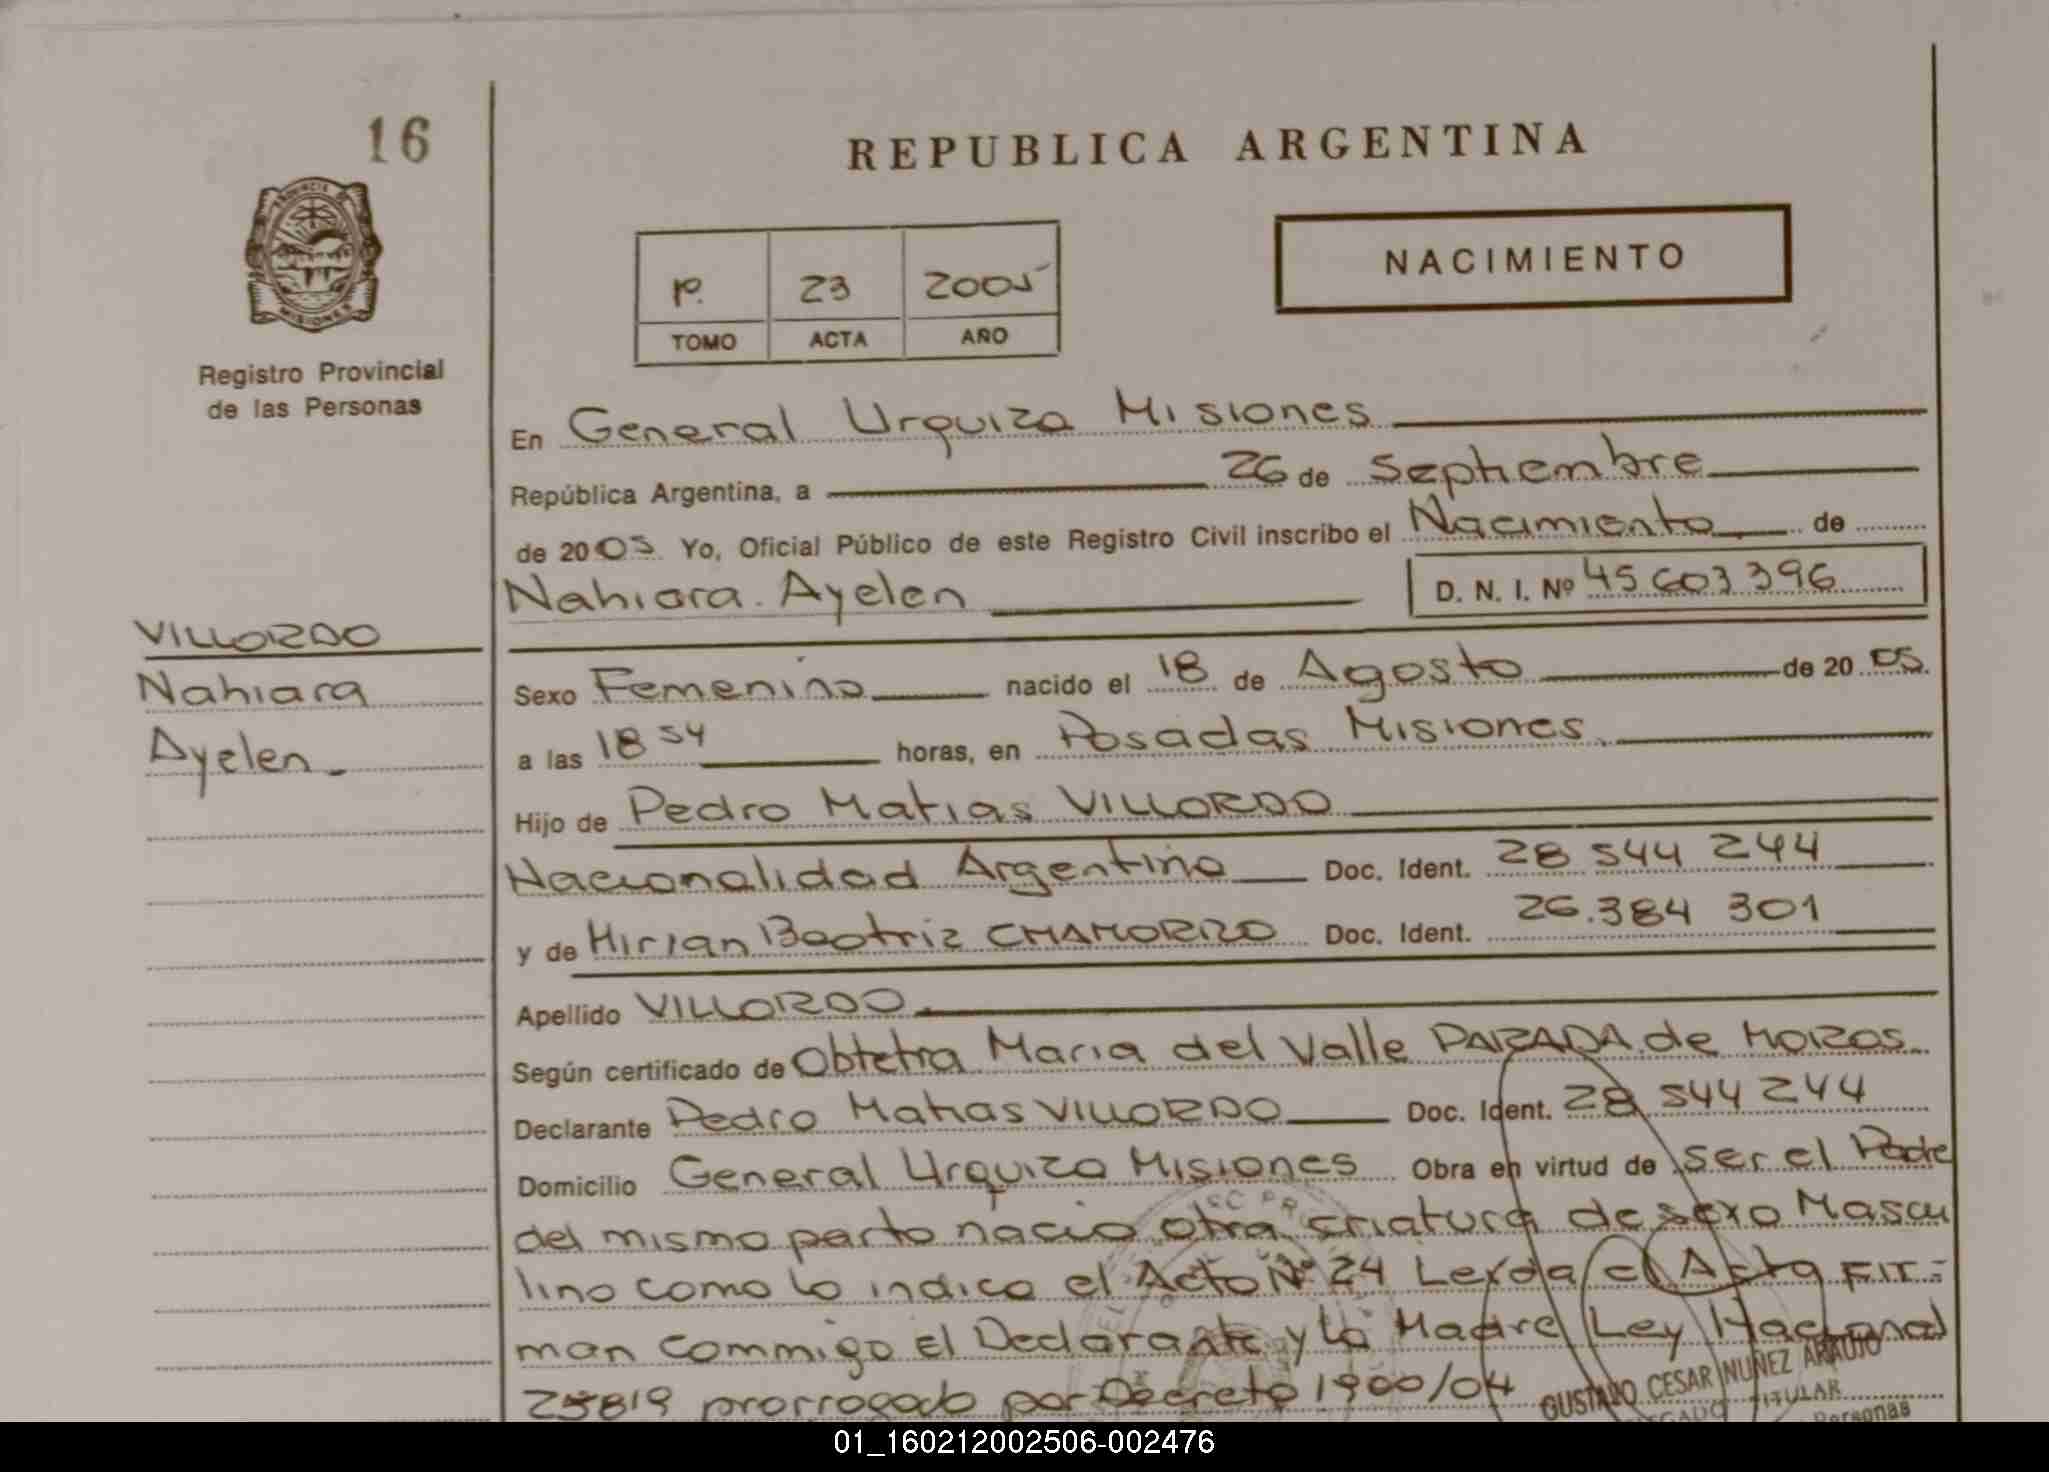 16
REPUBLICA ARGENTINA
PROVINCIA DE
MISIONES
Registro Provincial
de las Personas
NACIMIENTO
1º. 23 2005
TOMO ACTA AÑO
En General Urquiza Misiones
República Argentina, a 26 de Septiembre
de 2005 Yo, Oficial Público de este Registro Civil inscribo el Nacimiento de
Nahiara Ayelen D. N. I. Nº 45 603 396
VILLORDO
Nahiara
Ayelen
Sexo Femenino nacido el 18 de Agosto de 2005.
a las 18 54 horas, en Posadas Misiones.
Hijo de Pedro Matias VILLORDO
Nacionalidad Argentino Doc. Ident. 28 544 244
y de Mirian Beatriz CHAMORRO Doc. Ident. 26.384 301
Apellido VILLORDO.
Según certificado de Obtetra Maria del Valle PARADA de MOROS
Declarante Pedro Matias VILLORDO Doc. Ident. 28 544 244
Domicilio General Urquiza Misiones Obra en virtud de ser el Padre
del mismo parto nacio otra criatura de sexo Mascu
lino como lo indica el Acta Nº 24 Leida el Acta FIT-
man commigo el Declarante y la Madre Ley Nacional
25819 prorrogado por Decreto 1900/04
GUSTAVO CESAR NUÑEZ ARAUJO
TITULAR
Personas
01_160212002506-002476